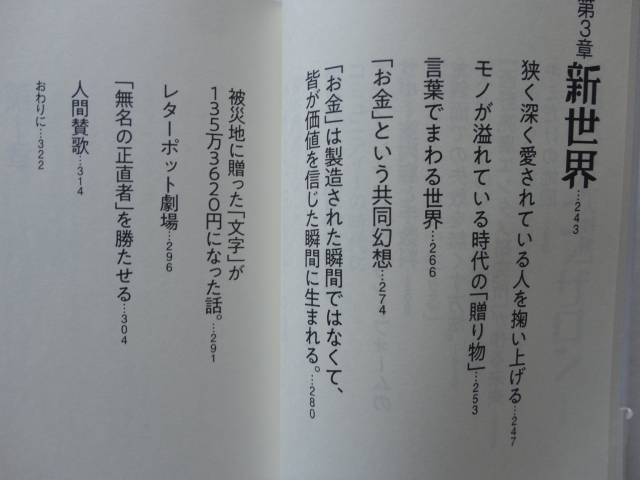 第3章
新世界…243
狭く深く愛されている人を掬い上げる…247
モノが溢れている時代の「贈り物」…253
言葉でまわる世界…266
「お金」という共同幻想…274
「お金」は製造された瞬間ではなくて、
皆が価値を信じた瞬間に生まれる。…280
被災地に贈った「文字」が
135万3620円になった話。…291
レターポット劇場…296
「無名の正直者」を勝たせる…304
人間賛歌…314
おわりに…322